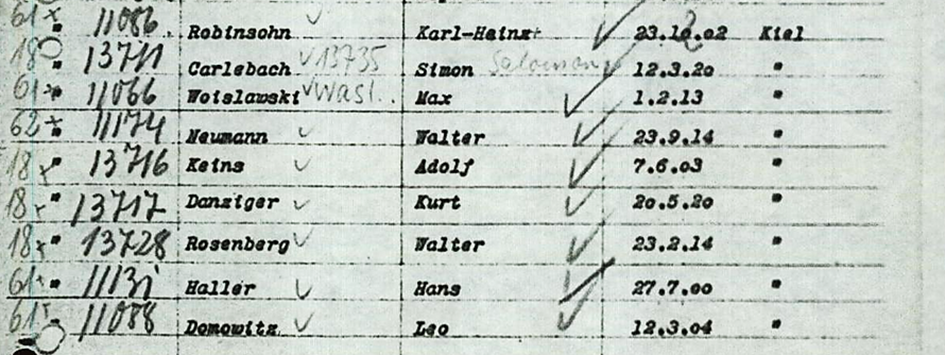 61 x 11086. Robinsohn Karl-Heinz 23.10.02 Kiel
18 13711 Carlebach 13735 Simon Salomon 12.3.20 "
61 x " 11066 Woislawski Wasl.. Max 1.2.13 "
62 x " 11174 Neumann Walter 23.9.14 "
18 x " 13716 Keins Adolf 7.6.03 "
18 x " 13717 Danziger Kurt 20.5.20 "
18 x " 13728 Rosenberg Walter 23.2.14 "
61 x " Haller Hans 27.7.00 "
61 x " 11088 Domowitz Leo 12.3.04 "